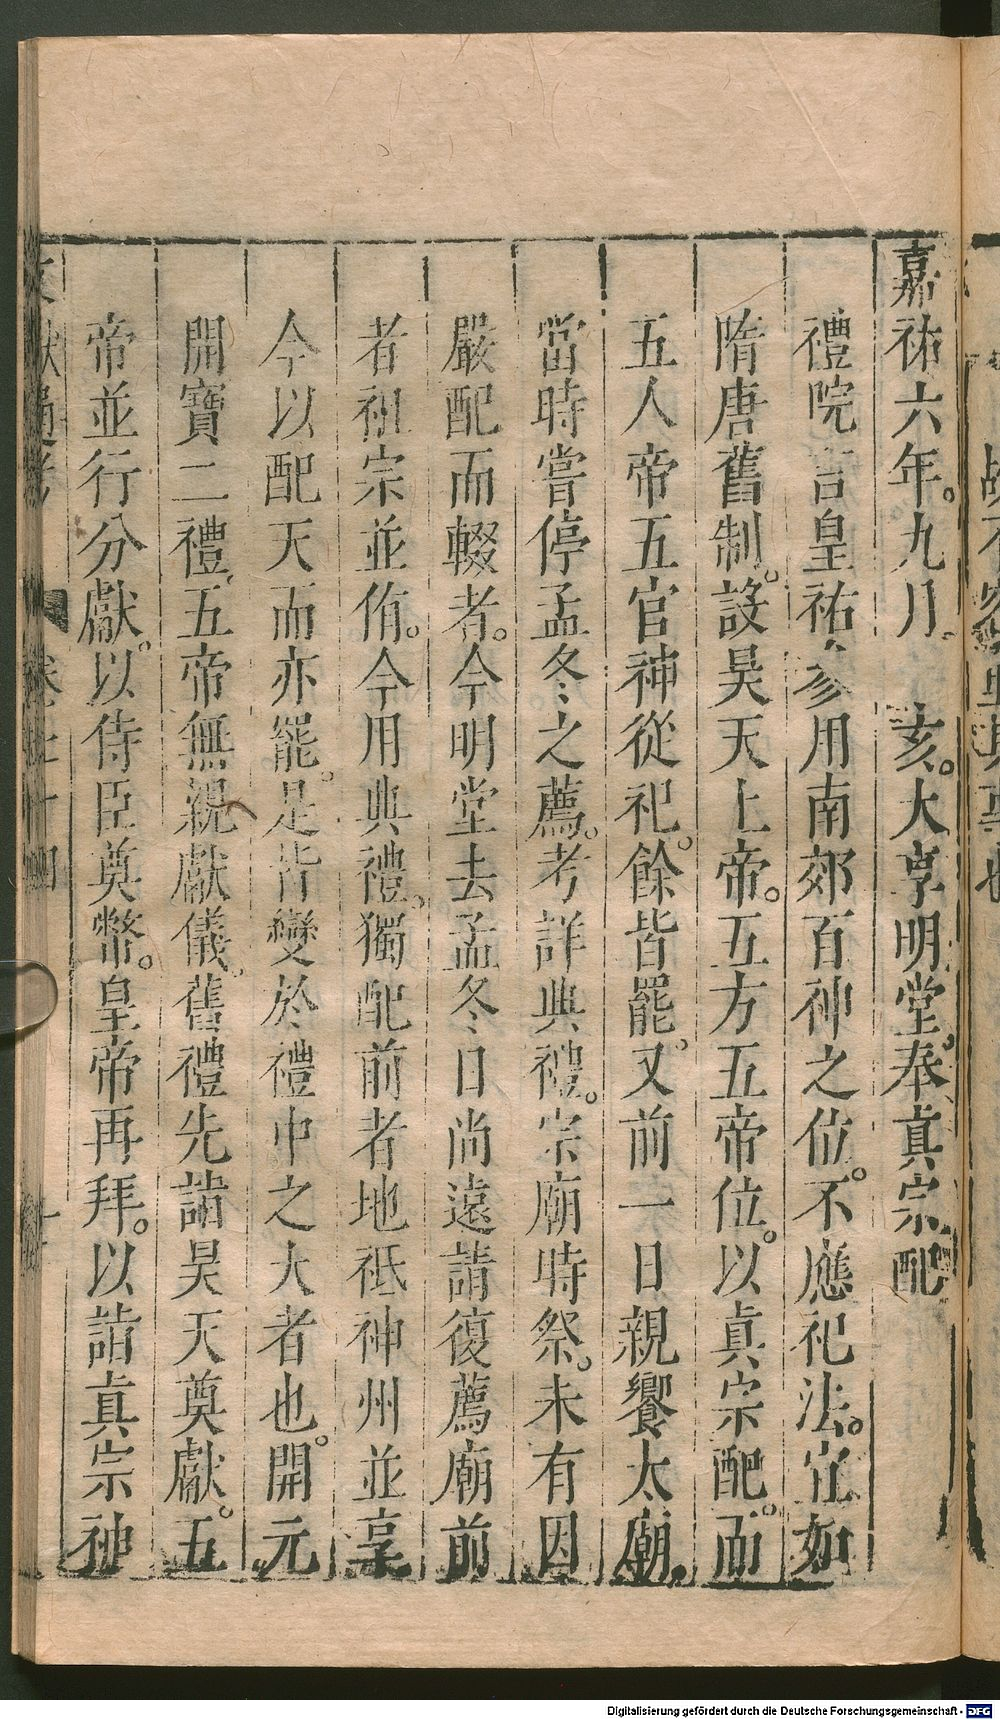 嘉祐六年。九月。亥。大享明堂。奉真宗配
禮院言皇祐參用南郊百神之位。不應祀法。宜如
隋唐舊制。設昊天上帝。五方五帝位。以真宗配。而
五人帝五官神從祀。餘皆罷。又前一日親饗太廟。
當時嘗停孟冬之薦。考詳典禮。宗廟時祭。未有因
嚴配而輟者。今明堂去孟冬日尚遠請復薦廟前
者祖宗並侑。今用典禮。獨配前者地祇神州並享
今以配天而亦罷。是皆變於禮中之大者也。開元
開寶二禮。五帝無親獻儀。舊禮先詣昊天奠獻。五
帝並行分獻。以侍臣奠幣。皇帝再拜。以詣真宗神
Digitalisierung gefördert durch die Deutsche Forschungsgemeinschaft - DFG